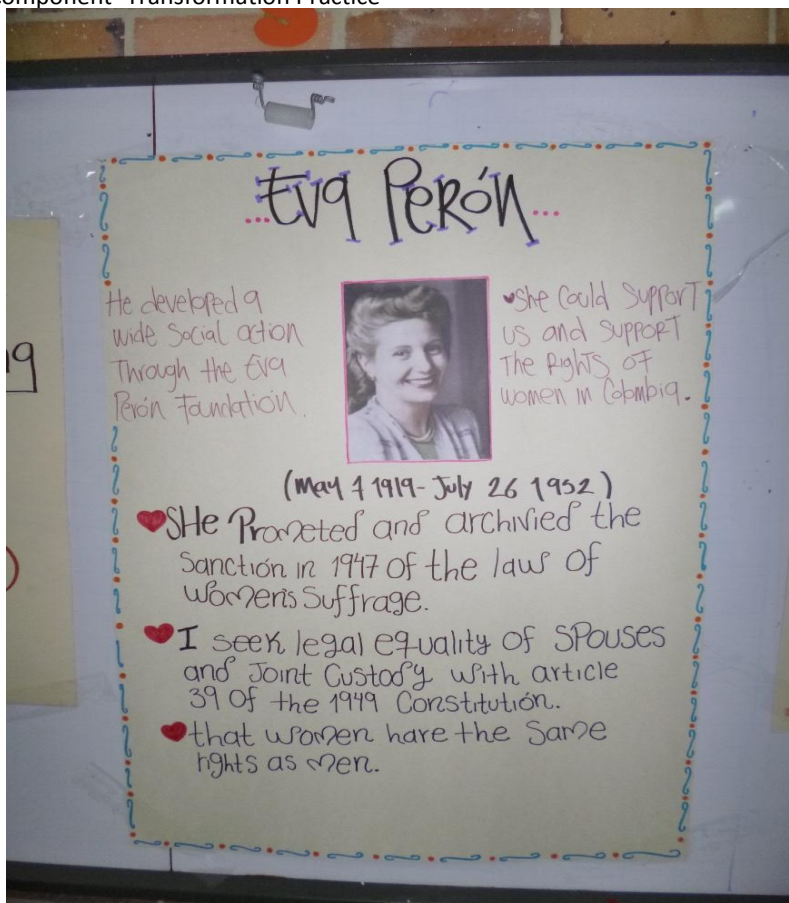 Component- Transformation Practice
...Eva Perón...
He developed a
wide social action
Through the Eva
Perón Foundation.
She Could Support
us and support
The Rights of
women in Colombia.
(May 7 1919- July 26 1952)
SHe Prometed and archivied the
Sanctión in 1947 of the laws of
Women's Suffrage.
I seek legal equality of Spouses
and Joint Custody with article
39 of the 1949 Constitutión.
that women have the Same
rights as men.